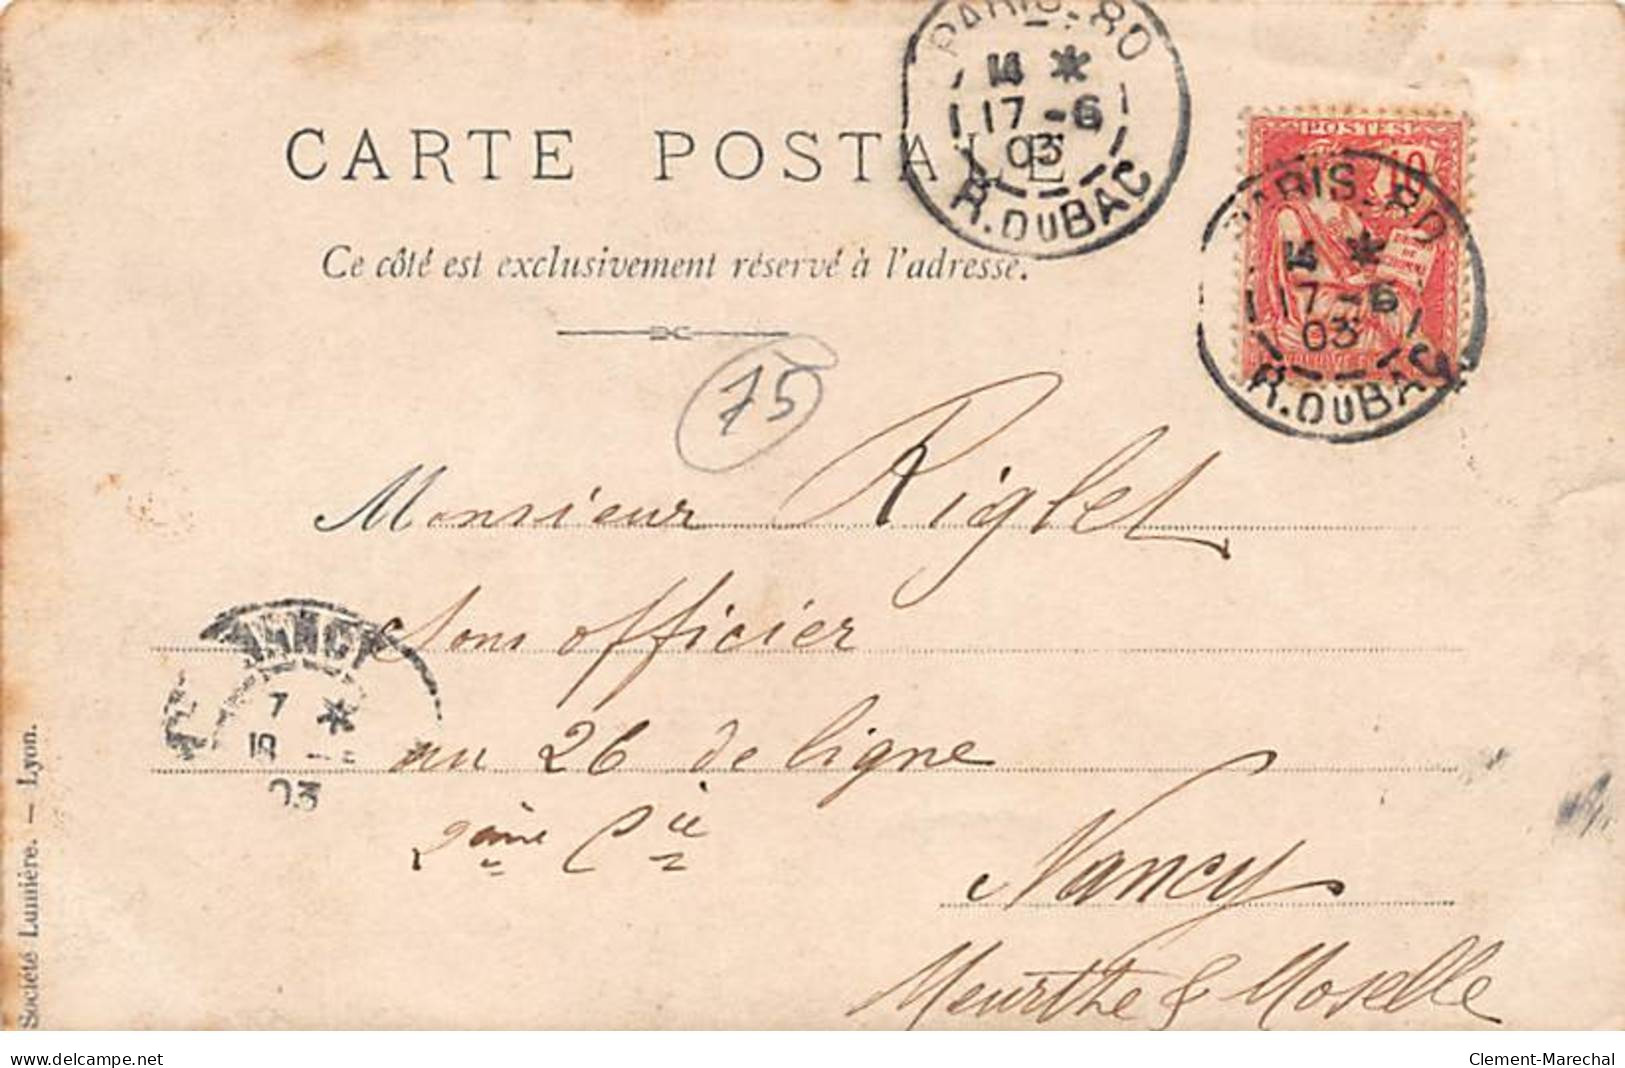 PARIS-80
17-6
03
R. DU BAC
CARTE POSTALE
Ce côté est exclusivement réservé à l'adresse.
POSTES
10
PARIS-80
17-6
03
R. DU BAC
75
Monsieur Riglet
Sous officier
au 26 de ligne
2ème Cie
Nancy
Meurthe & Moselle
NANCY
7
18
03
Société Lumière. — Lyon.
www.delcampe.net
Clement-Marechal